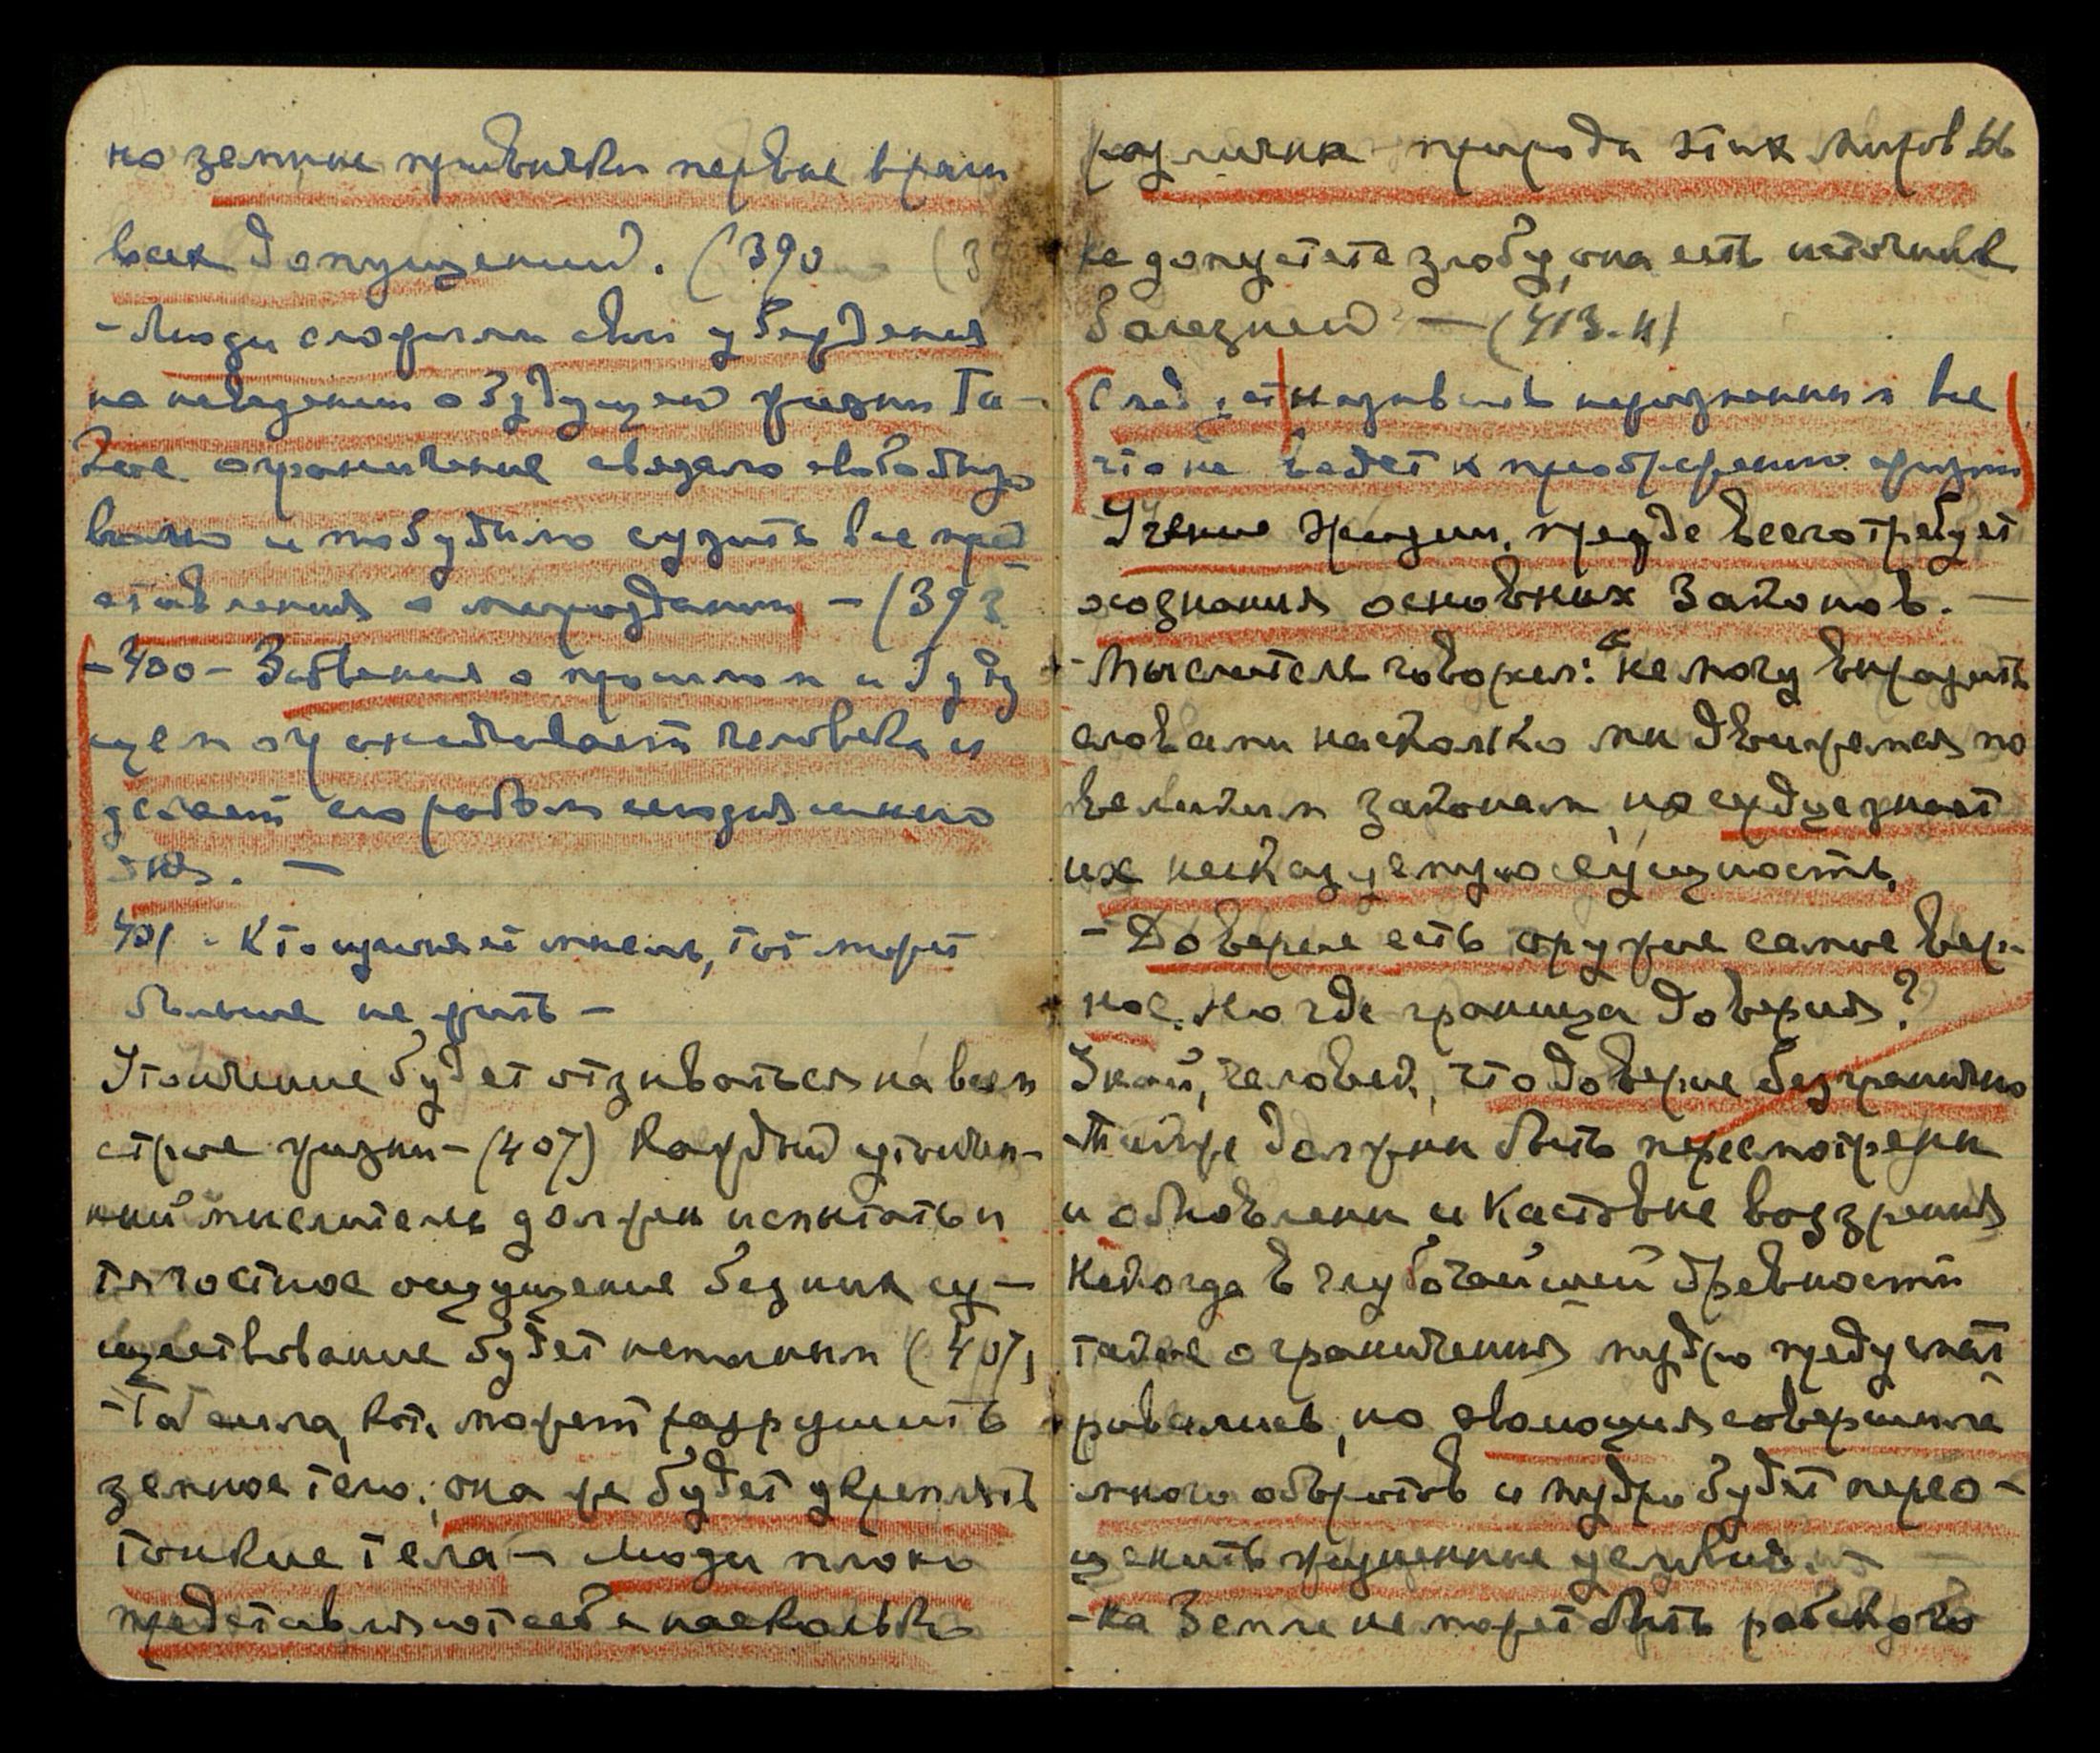 но земные привычки первые враги
всех допущений. (390
- Люди сложили свои убеждения
на неведении о будущей жизни Та-
кое ограничение связало свободную
волю и побудило сузить все пред
ставления о мироздании - (393
- 400 - Забвения о прошлом и буду
щем ограничивает человека и
делает его рабом сегодняшнего
дня. —
401 - Кто изменяет мысль, тот может
больше не жить -
Утончение будет отзываться на всем
строе жизни - (407) Каждый утончен-
ный мыслитель должен испытать и
тягостное ощущение без них су-
ществование будет неполным (407)
- Та сила, кот. может разрушить
земное тело; она же будет укреплять
тонкие тела - Люди плохо
представляют себе насколько
различна природа этих миров 66
Не допустите злобу, она есть источник
болезней — (413. н)
Следует называть неразумным все
что не ведет к преображению жизни
Учение Жизни, прежде всего требует
осознания основных Законов. —
- Мыслитель говорил: "Не могу выразить
словами насколько мы движемся по
великим законам, но сердце знает
их несказуемую сущность,
- Доверие есть оружие самое вер-
ное. Но где граница доверия?
Знай, человек, что доверие безгранично
Также должны быть пересмотрены
и обновлены и Кастовые воззрения
Некогда в глубочайшей древности
такие ограничения мудро предусмат
ривались, но эволюция совершила
много оборотов и мудро будет перео-
ценить жизненные условия. -
- На Земле не может быть рабского